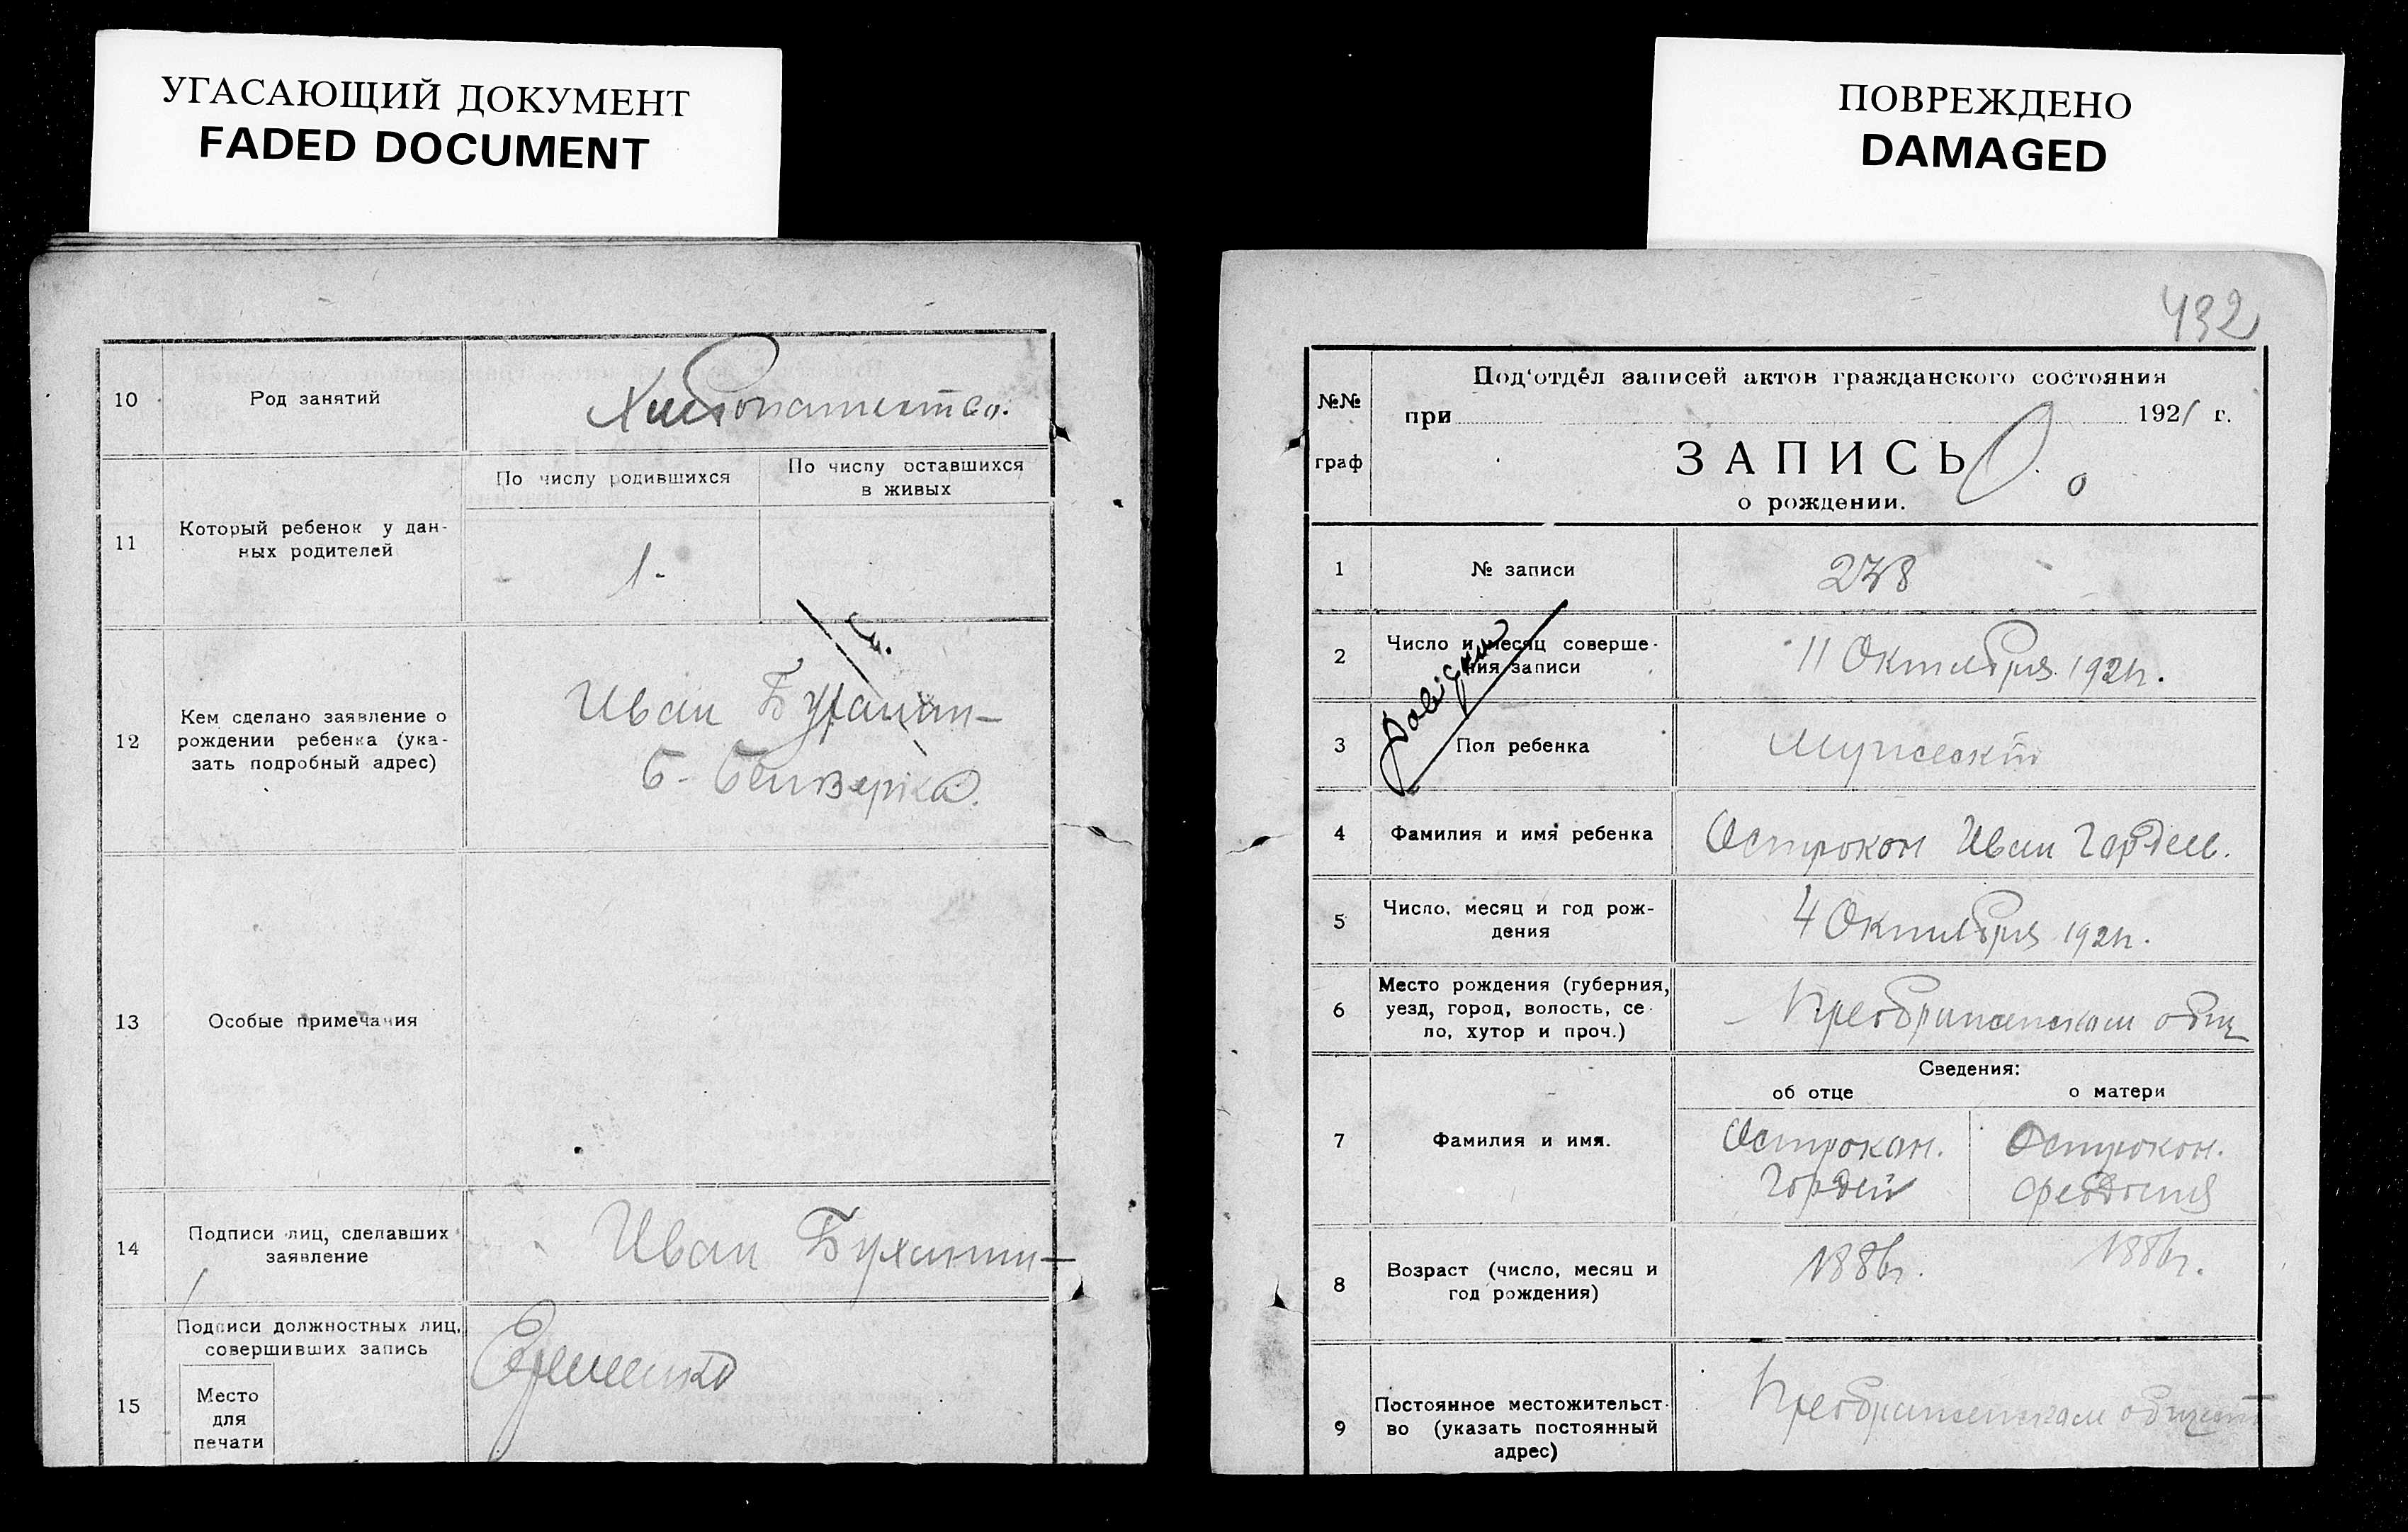 УГАСАЮЩИЙ ДОКУМЕНТ
FADED DOCUMENT
10
Род занятий
Хлебопашество.
11
Который ребенок у дан-
ных родителей
По числу родившихся
По числу оставшихся
в живых
1.
12
Кем сделано заявление о
рождении ребенка (ука-
зать подробный адрес)
Иван
Б-
13
Особые примечания
14
Подписи лиц, сделавших
заявление
Иван
15
Подписи должностных лиц,
совершивших запись
Место
для
печати
ПОВРЕЖДЕНО
DAMAGED
432
№№
граф
Под'отдел записей актов гражданского состояния
при 1921 г.
ЗАПИСЬ
о рождении.
1
№ записи
238
2
Число и месяц соверше-
ния записи
11 Октября 1921г.
3
Пол ребенка
Мужский
4
Фамилия и имя ребенка
Острокон Иван Гордеев.
5
Число, месяц и год рож-
дения
4 Октября 1921г.
6
Место рождения (губерния,
уезд, город, волость, се-
ло, хутор и проч.)
общ
Сведения:
об отце
о матери
7
Фамилия и имя.
Острокон.
Гордей
Острокон.
Феодосия
8
Возраст (число, месяц и
год рождения)
1886г.
1886г.
9
Постоянное местожительст-
во (указать постоянный
адрес)